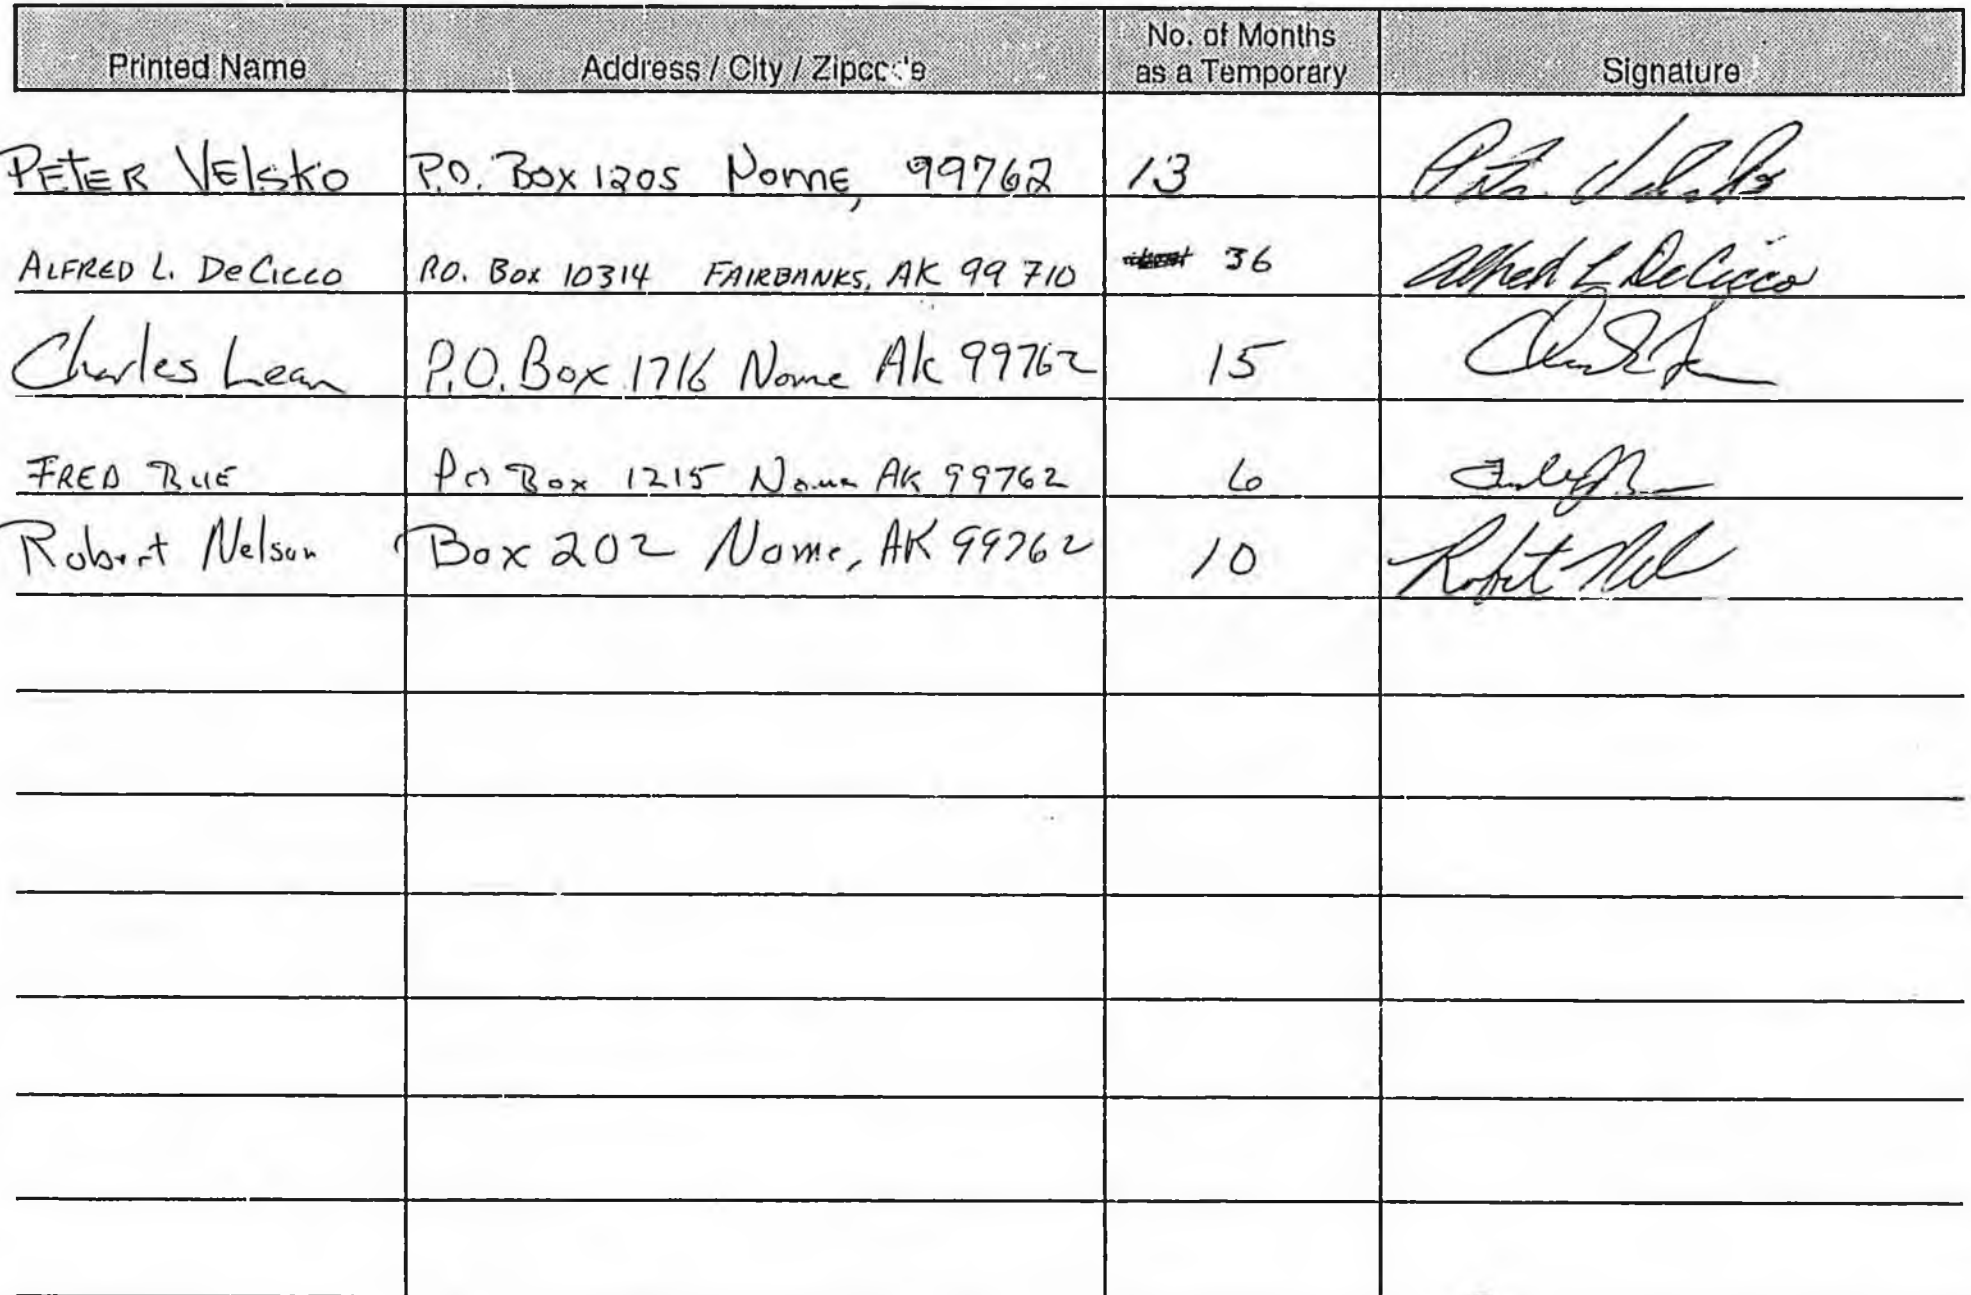 Printed Name Address / City / Zipcode No. of Months as a Temporary Signature
PETER VELSKO P.O. Box 1205 Nome, 99762 13
ALFRED L. DeCICCO P.O. Box 10314 FAIRBANKS, AK 99710 36 Alfred L DeCicco
Charles Lean P.O. Box 1716 Nome Ak 99762 15
FRED BUE PO Box 1215 Nome AK 99762 6
Robert Nelson Box 202 Nome, AK 99762 10 Robert Nel